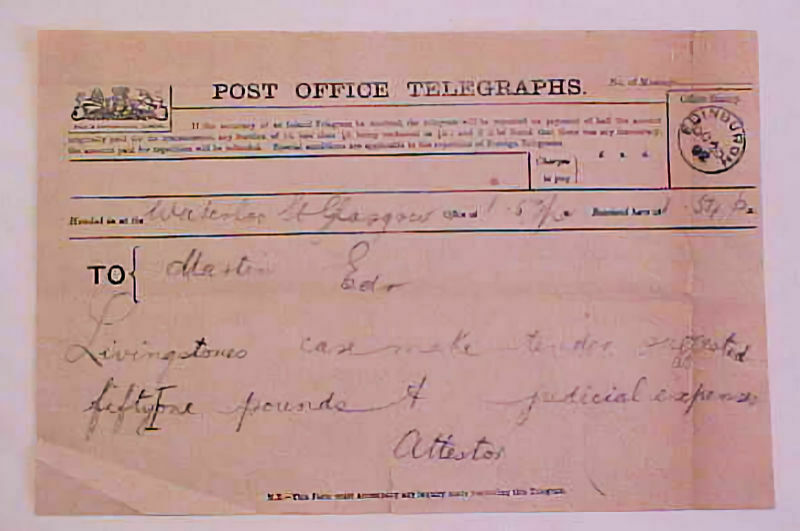 POST OFFICE TELEGRAPHS.
No. of Message
Office Stamp.
EDINBURGH
92
If the accuracy of an Inland Telegram be doubted, the telegram will be repeated on payment of half the amount
originally paid for its transmission, any fraction of 1d. less than ½d. being reckoned as ½d.; and if it be found that there was any inaccuracy,
the amount paid for repetition will be refunded. Special conditions are applicable to the repetition of Foreign Telegrams.
Charges to pay
£ s. d.
Handed in at the St Glasgow Office at Received here at 1.54 p.m.
TO Edr
Livingstones case make tender suggested
fifty one pounds & judicial expenses
Attestor
N.B.—This Form must accompany any inquiry made respecting this Telegram.